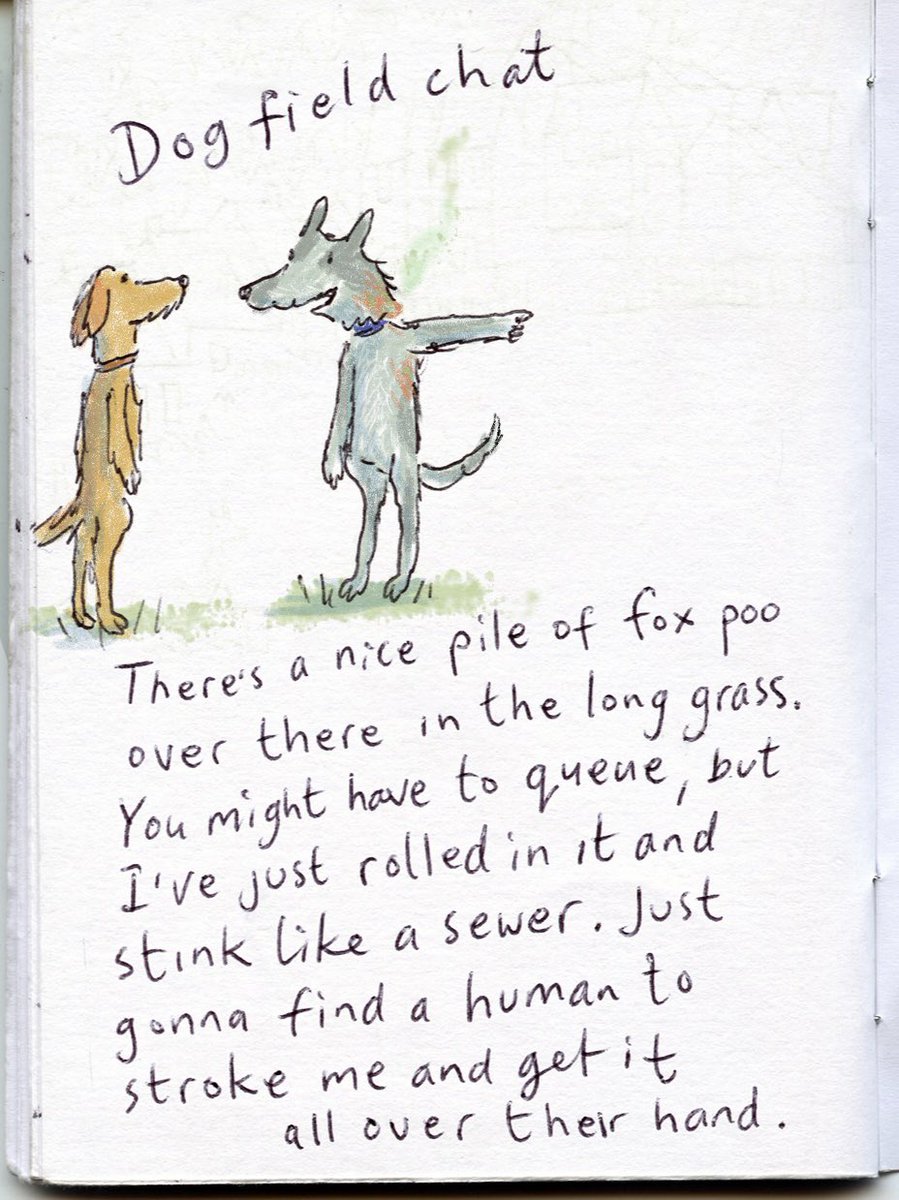 Dog field chat
There's a nice pile of fox poo
over there in the long grass.
You might have to queue, but
I've just rolled in it and
stink like a sewer. Just
gonna find a human to
stroke me and get it
all over their hand.